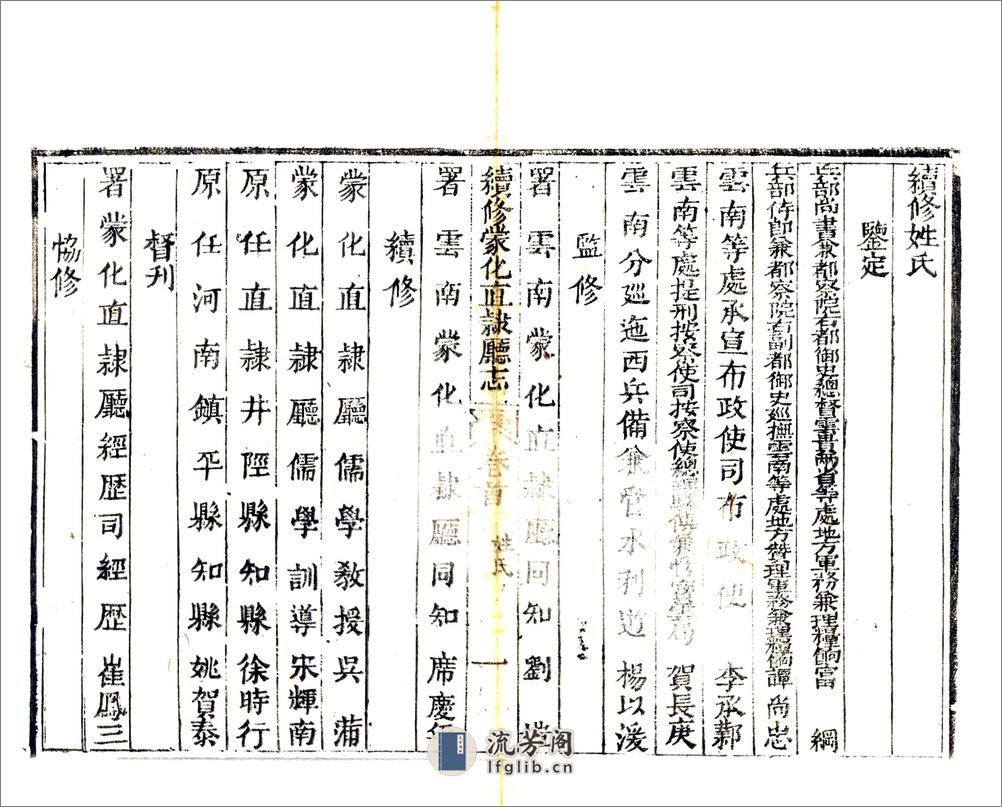 續修姓氏
鑒定
兵部尚書兼都察院右都御史總督雲貴兩省等處地方軍務兼理糧餉富 綱
兵部侍郎兼都察院右副都御史巡撫雲南等處地方贊理軍務兼理糧餉譚 尚忠
雲南等處承宣布政使司布政使 李承鄴
雲南等處提刑按察使司按察使總 賀長庚
雲南分巡迤西兵備兼管水利道 楊以湲
監修
署雲南蒙化直隸廳同知 劉
續修蒙化直隸廳志 卷首 姓氏 一
署雲南蒙化直隸廳同知 席慶
續修
蒙化直隸廳儒學教授 吳蒲
蒙化直隸廳儒學訓導 宋輝南
原任直隸井陘縣知縣 徐時行
原任河南鎮平縣知縣 姚賀泰
督刊
署蒙化直隸廳經歷司經歷 崔鳳三
恊修
流芳阁
lfglib.cn